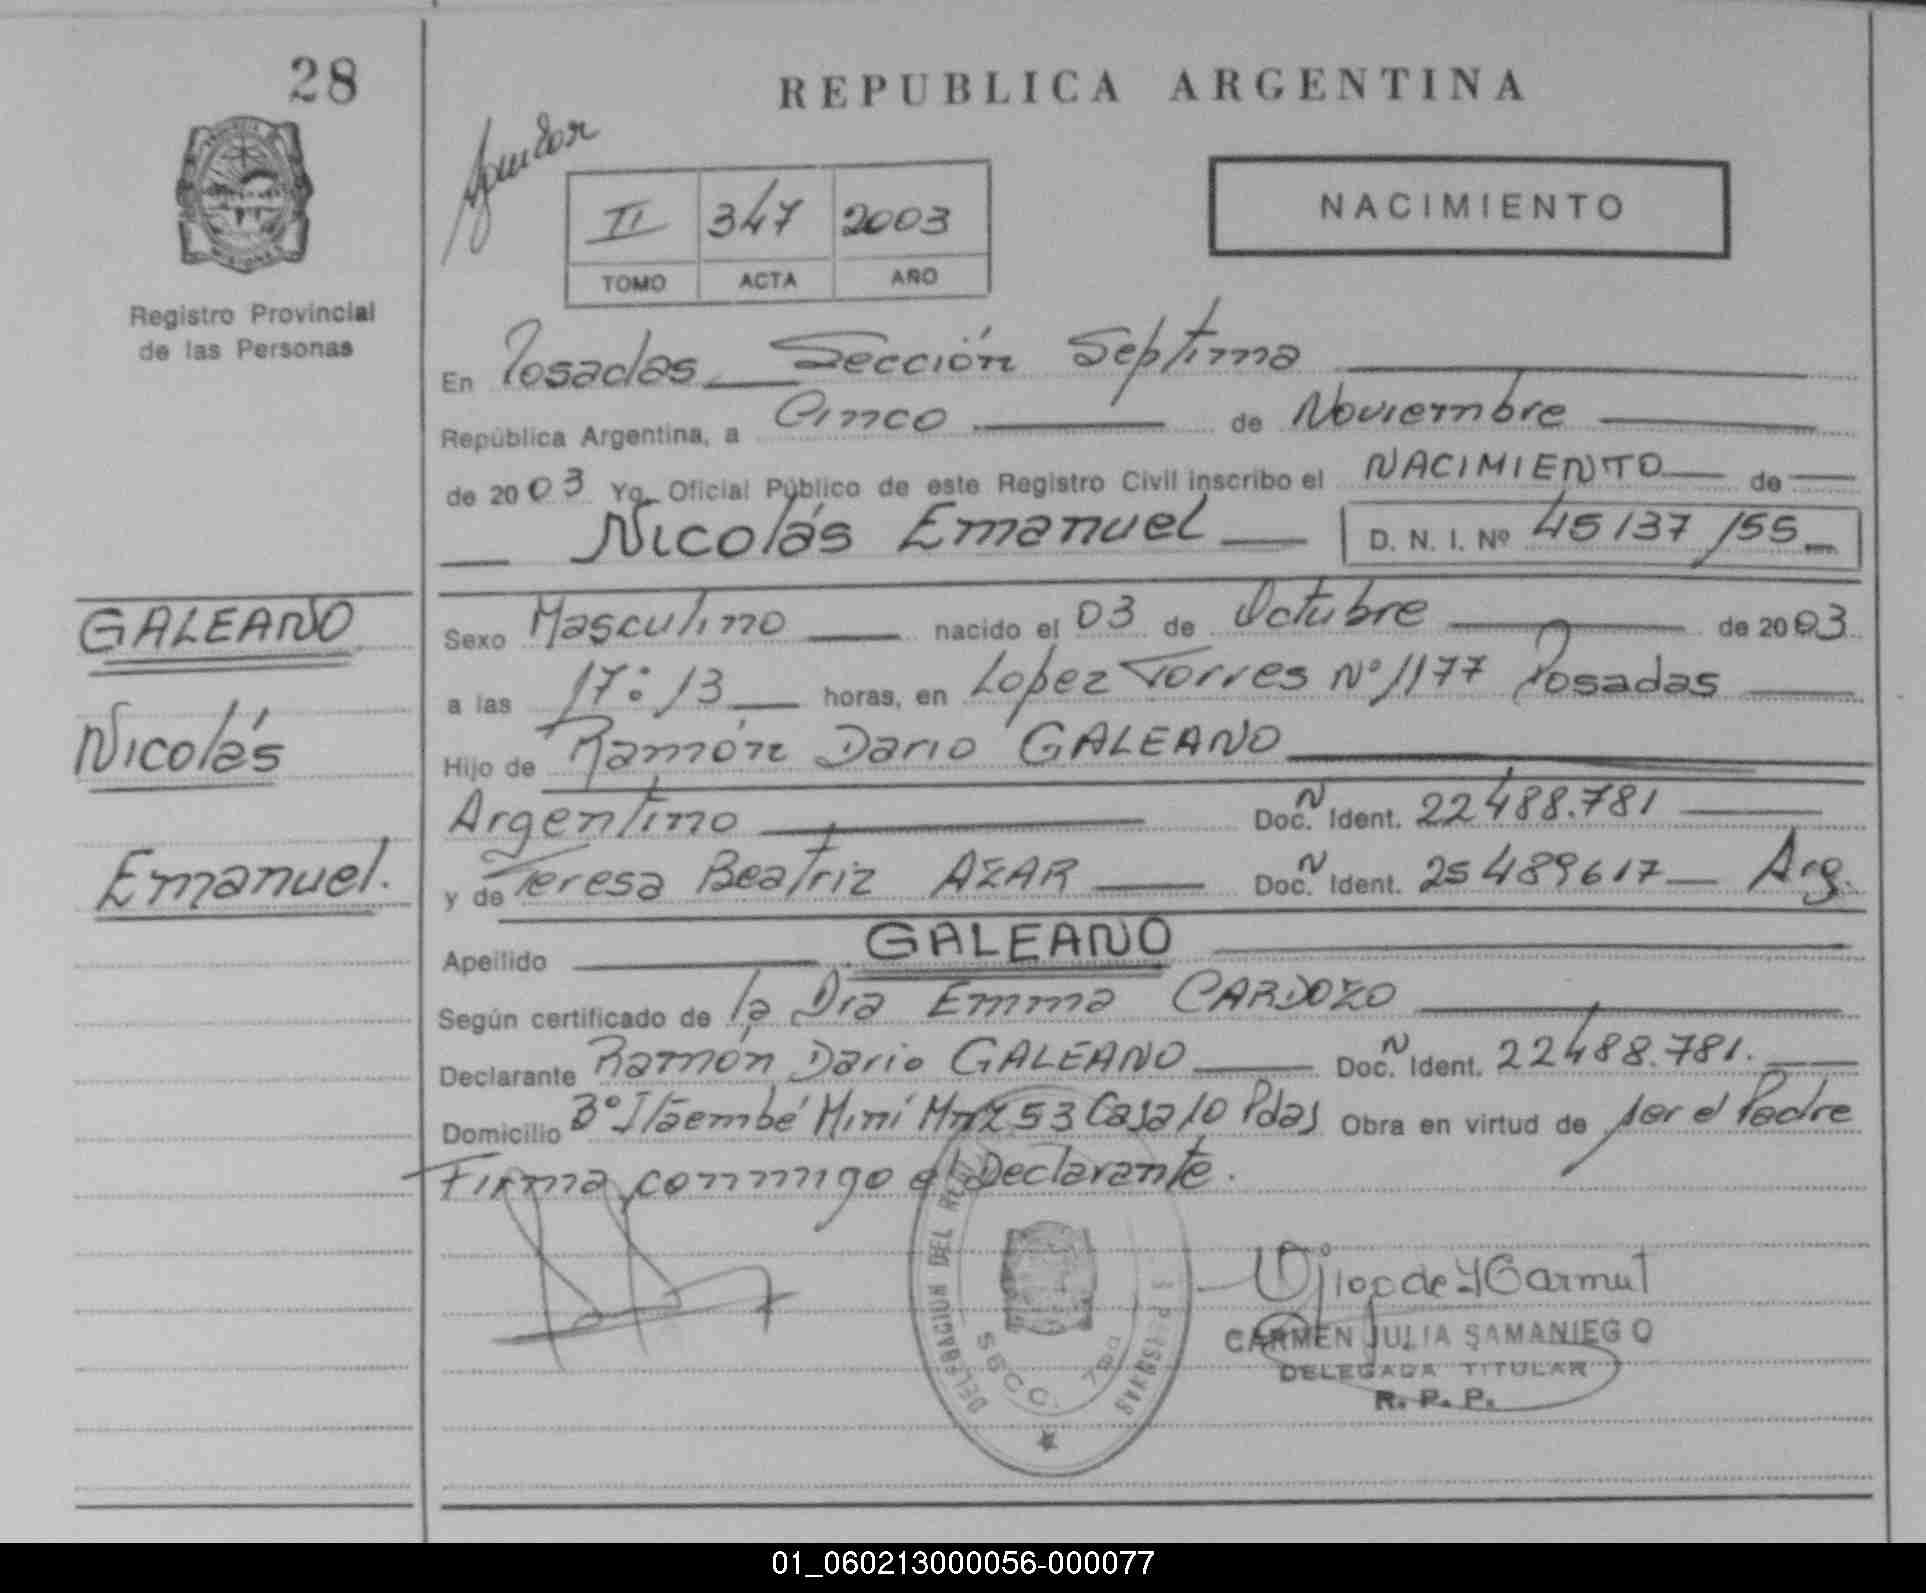 28
REPUBLICA ARGENTINA
II 347 2003
TOMO ACTA AÑO
NACIMIENTO
Registro Provincial
de las Personas
En Posadas Sección Septima
República Argentina, a Cinco de Noviembre
de 2003 Yo Oficial Público de este Registro Civil inscribo el NACIMIENTO de
Nicolás Emanuel D. N. I. Nº 45137155
GALEANO
Nicolás
Emanuel.
Sexo Masculino nacido el 03 de Octubre de 2003
a las 17:13 horas, en Lopez Torres Nº 1177 Posadas
Hijo de Ramón Dario GALEANO
Argentino Doc. N Ident. 22488.781
y de Teresa Beatriz AZAR Doc. N Ident. 25489617 Arg.
Apellido GALEANO
Según certificado de la Dra Emma CARDOZO
Declarante Ramón Dario GALEANO Doc. N Ident. 22488.781.
Domicilio Bº Itaembé Miní Mnz 53 Casa 10 Pdas Obra en virtud de ser el Padre
Firma conmigo el Declarante.
DELEGACION DEL
SECC. 7ma
CARMEN JULIA SAMANIEGO
DELEGADA TITULAR
R. P. P.
01_060213000056-000077